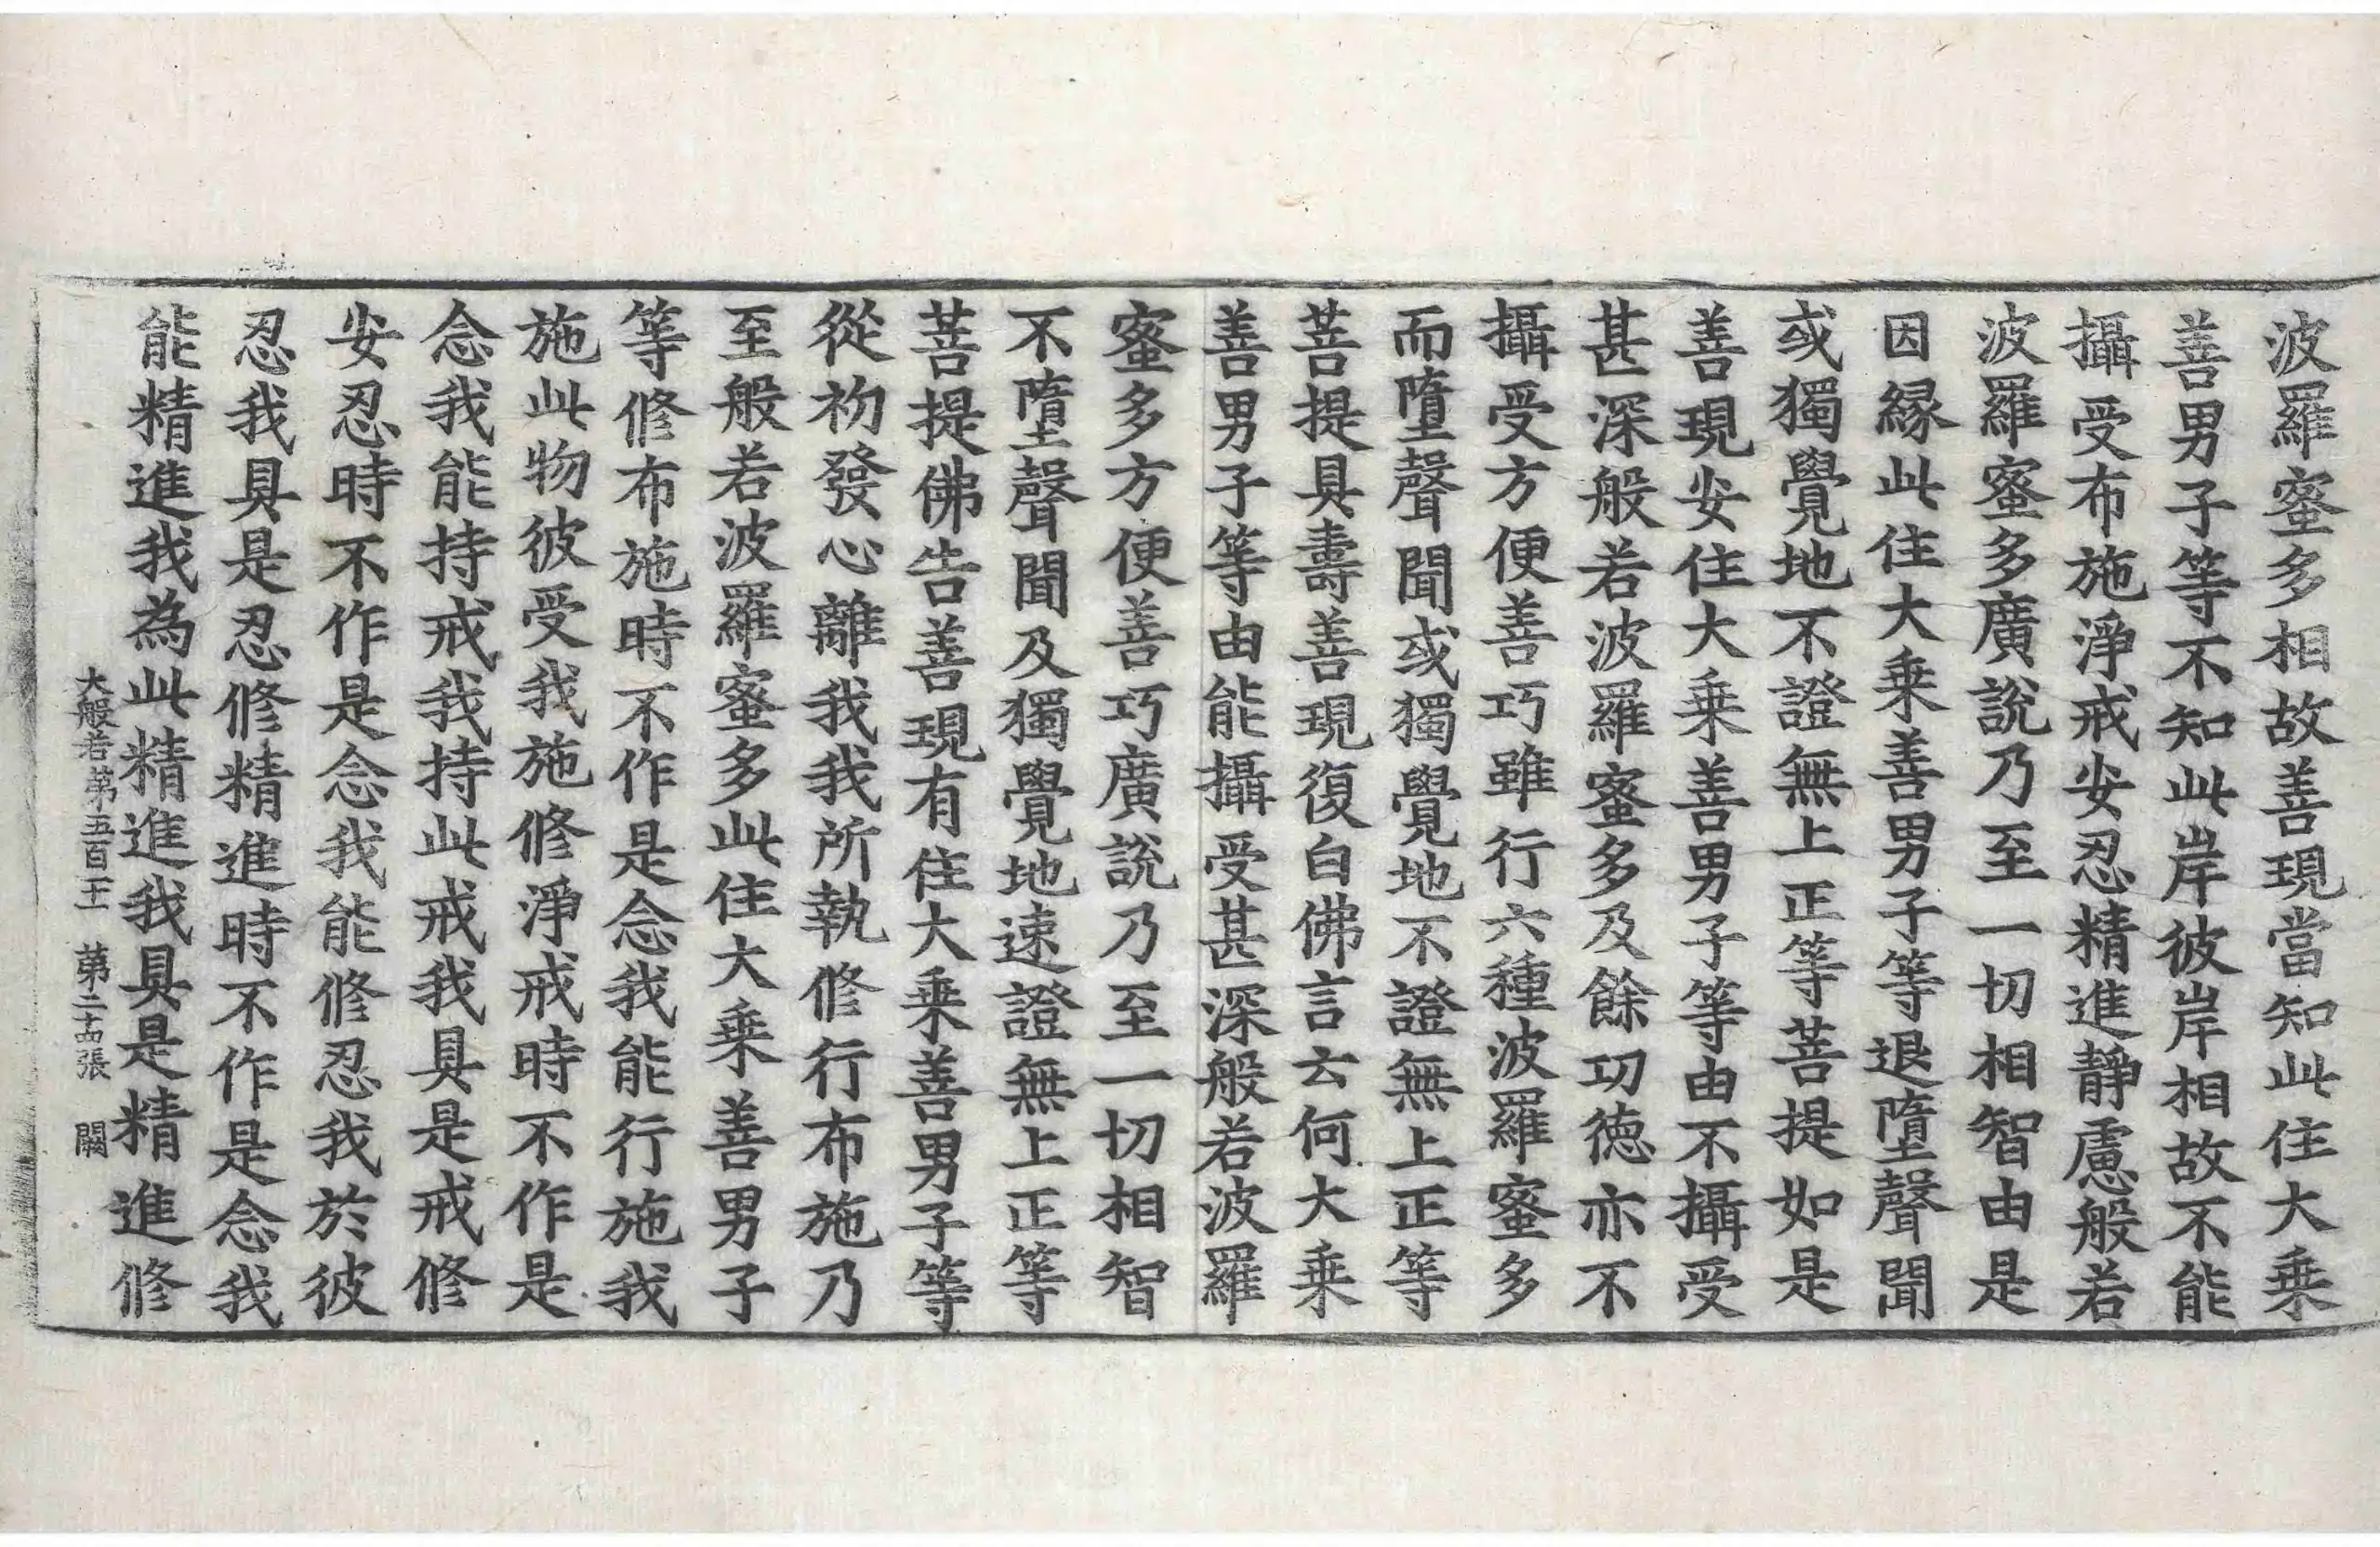 波羅蜜多相故善現當知此住大乗
善男子等不知此岸彼岸相故不能
攝受布施淨戒安忍精進靜慮般若
波羅蜜多廣說乃至一切相智由是
因縁此住大乗善男子等退墮聲聞
或獨覺地不證無上正等菩提如是
善現安住大乗善男子等由不攝受
甚深般若波羅蜜多及餘功德亦不
攝受方便善巧雖行六種波羅蜜多
而墮聲聞或獨覺地不證無上正等
菩提具壽善現復白佛言云何大乗
善男子等由能攝受甚深般若波羅
蜜多方便善巧廣說乃至一切相智
不墮聲聞及獨覺地速證無上正等
菩提佛告善現有住大乗善男子等
從初發心離我我所執修行布施乃
至般若波羅蜜多此住大乗善男子
等修布施時不作是念我能行施我
施此物彼受我施修淨戒時不作是
念我能持戒我持此戒我具是戒修
安忍時不作是念我能修忍我於彼
忍我具是忍修精進時不作是念我
能精進我為此精進我具是精進修
大般若第五百二十 第二十四張 闕